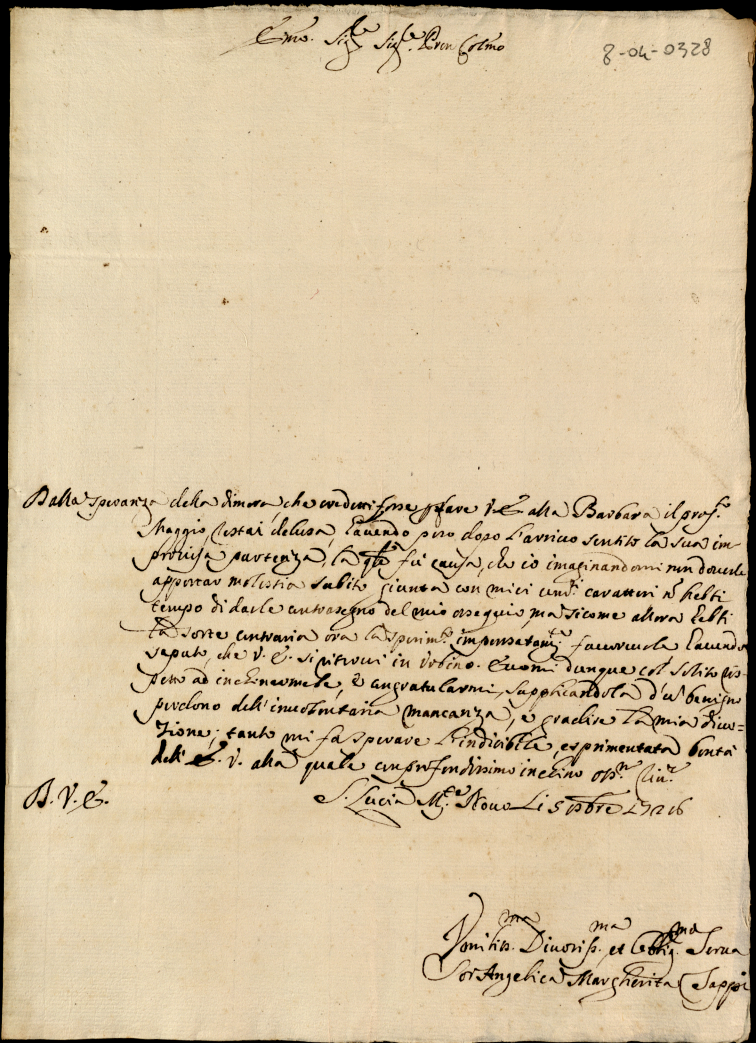 Emo. Sig.re Sig.re Pron Colmo
8-04-0328
Dalla speranza della dimora, che credetti fosse p fare V. E. alla Barbara il pros.o
Maggio, restai delusa, havendo pero dopo l'arrivo sentito la sua im=
provisa partenza, la qle fù causa, che io imaginandomi non doverle
apportar molestia subito giunta con miei caratteri nò hebbi
tempo di darle contrasegno del mio ossequio, ma sicome allora hebbi
la sorte contraria ora la sperim.to impensatam.te favorevole havendo
saputo, che V. E. si ritrovi in Urbino. Eccomi dunque col solito ris=
petto ad inchinarmele, è congratularmi, supplicandola d'ù benigno
perdono dell'involontaria mancanza, è gradire la mia divo=
zione; tanto mi fa sperare l'indicibile, esprimentata bontà
dell' E. V. alla quale con profondissimo inchino
D. V. E.
S. Lucia M.e Novo Li 5 1726
Umilis.ma Divotis.ma et Oblig.ma Serva
Sor Angelica Margherita Zappi